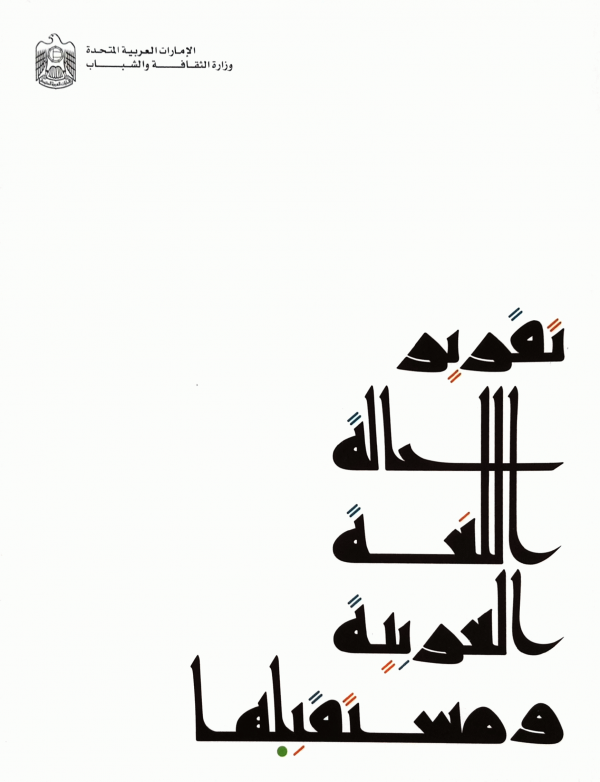 الإمارات العربية المتحدة
وزارة الثقافة والشباب
تقرير
حالة
اللغة
العربية
ومستقبلها